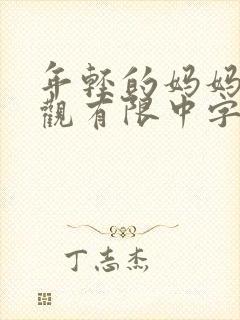 年轻的妈妈
觀有限中字
丁志杰